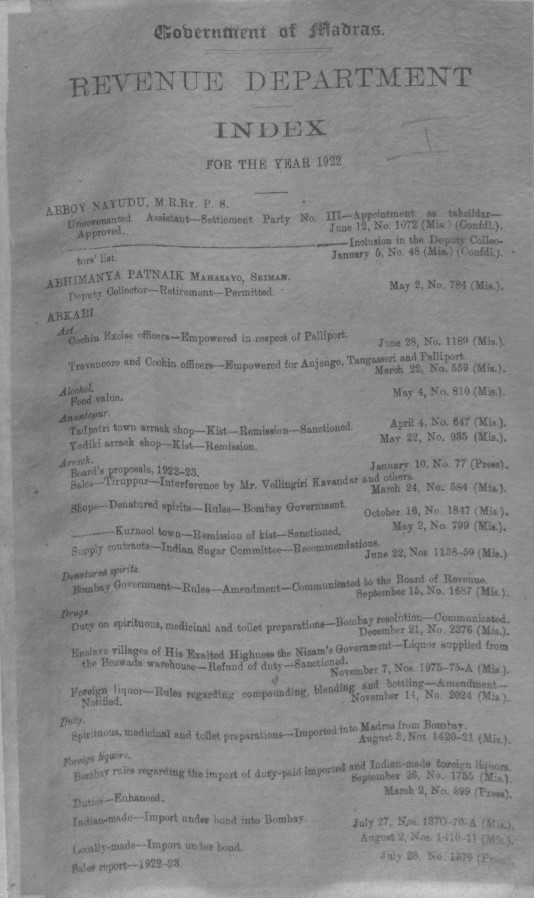 Government of Madras.
REVENUE DEPARTMENT
INDEX
I
FOR THE YEAR 1922
ABBOY NAYUDU, M.R.RY. P. S.
Uncovenanted Assistant—Settlement Party No. III—Appointment as tahsildar—
Approved. June 12, No. 1072 (Mis.) (Confdl.).
———Inclusion in the Deputy Collec-
tors' list. January 5, No. 48 (Mis.) (Confdl.).
ABHIMANYA PATNAIK MAHASAYO, SRIMAN.
Deputy Collector—Retirement—Permitted. May 2, No. 784 (Mis.).
ABKARI
Act.
Cochin Excise officers—Empowered in respect of Palliport. June 28, No. 1189 (Mis.).
Travancore and Cochin officers—Empowered for Anjengo, Tangasseri and Palliport.
March 22, No. 559 (Mis.).
Alcohol.
Food value. May 4, No. 810 (Mis.).
Anantapur.
Tadpatri town arrack shop—Kist—Remission—Sanctioned. April 4, No. 647 (Mis.).
Yediki arrack shop—Kist—Remission. May 22, No. 935 (Mis.).
Arrack.
Board's proposals, 1922-23. January 10, No. 77 (Press).
Sales—Tiruppur—Interference by Mr. Vellingiri Kavandar and others.
March 24, No. 584 (Mis.).
Shops—Denatured spirits—Rules—Bombay Government. October 16, No. 1847 (Mis.).
———Kurnool town—Remission of kist—Sanctioned. May 2, No. 799 (Mis.).
Supply contracts—Indian Sugar Committee—Recommendations.
June 22, Nos. 1158-59 (Mis.)
Denatured spirits.
Bombay Government—Rules—Amendment—Communicated to the Board of Revenue.
September 15, No. 1687 (Mis.).
Drugs.
Duty on spirituous, medicinal and toilet preparations—Bombay resolution—Communicated.
December 21, No. 2276 (Mis.).
Enclave villages of His Exalted Highness the Nizam's Government—Liquor supplied from
the Bezwada warehouse—Refund of duty—Sanctioned.
November 7, Nos. 1975-75-A (Mis.).
Foreign liquor—Rules regarding compounding, blending and bottling—Amendment—
Notified. November 14, No. 2024 (Mis.).
Duty.
Spirituous, medicinal and toilet preparations—Imported into Madras from Bombay.
August 3, Nos. 1420-21 (Mis.).
Foreign liquors.
Bombay rules regarding the import of duty-paid imported and Indian-made foreign liquors.
September 26, No. 1755 (Mis.).
Duties—Enhanced. March 2, No. 399 (Press).
Indian-made—Import under bond into Bombay. July 27, Nos. 1370-70-A (Mis.).
Locally-made—Import under bond. August 2, Nos. 1410-11 (Mis.).
Sales report—1922-23. July 28, No. 1379 (Press).